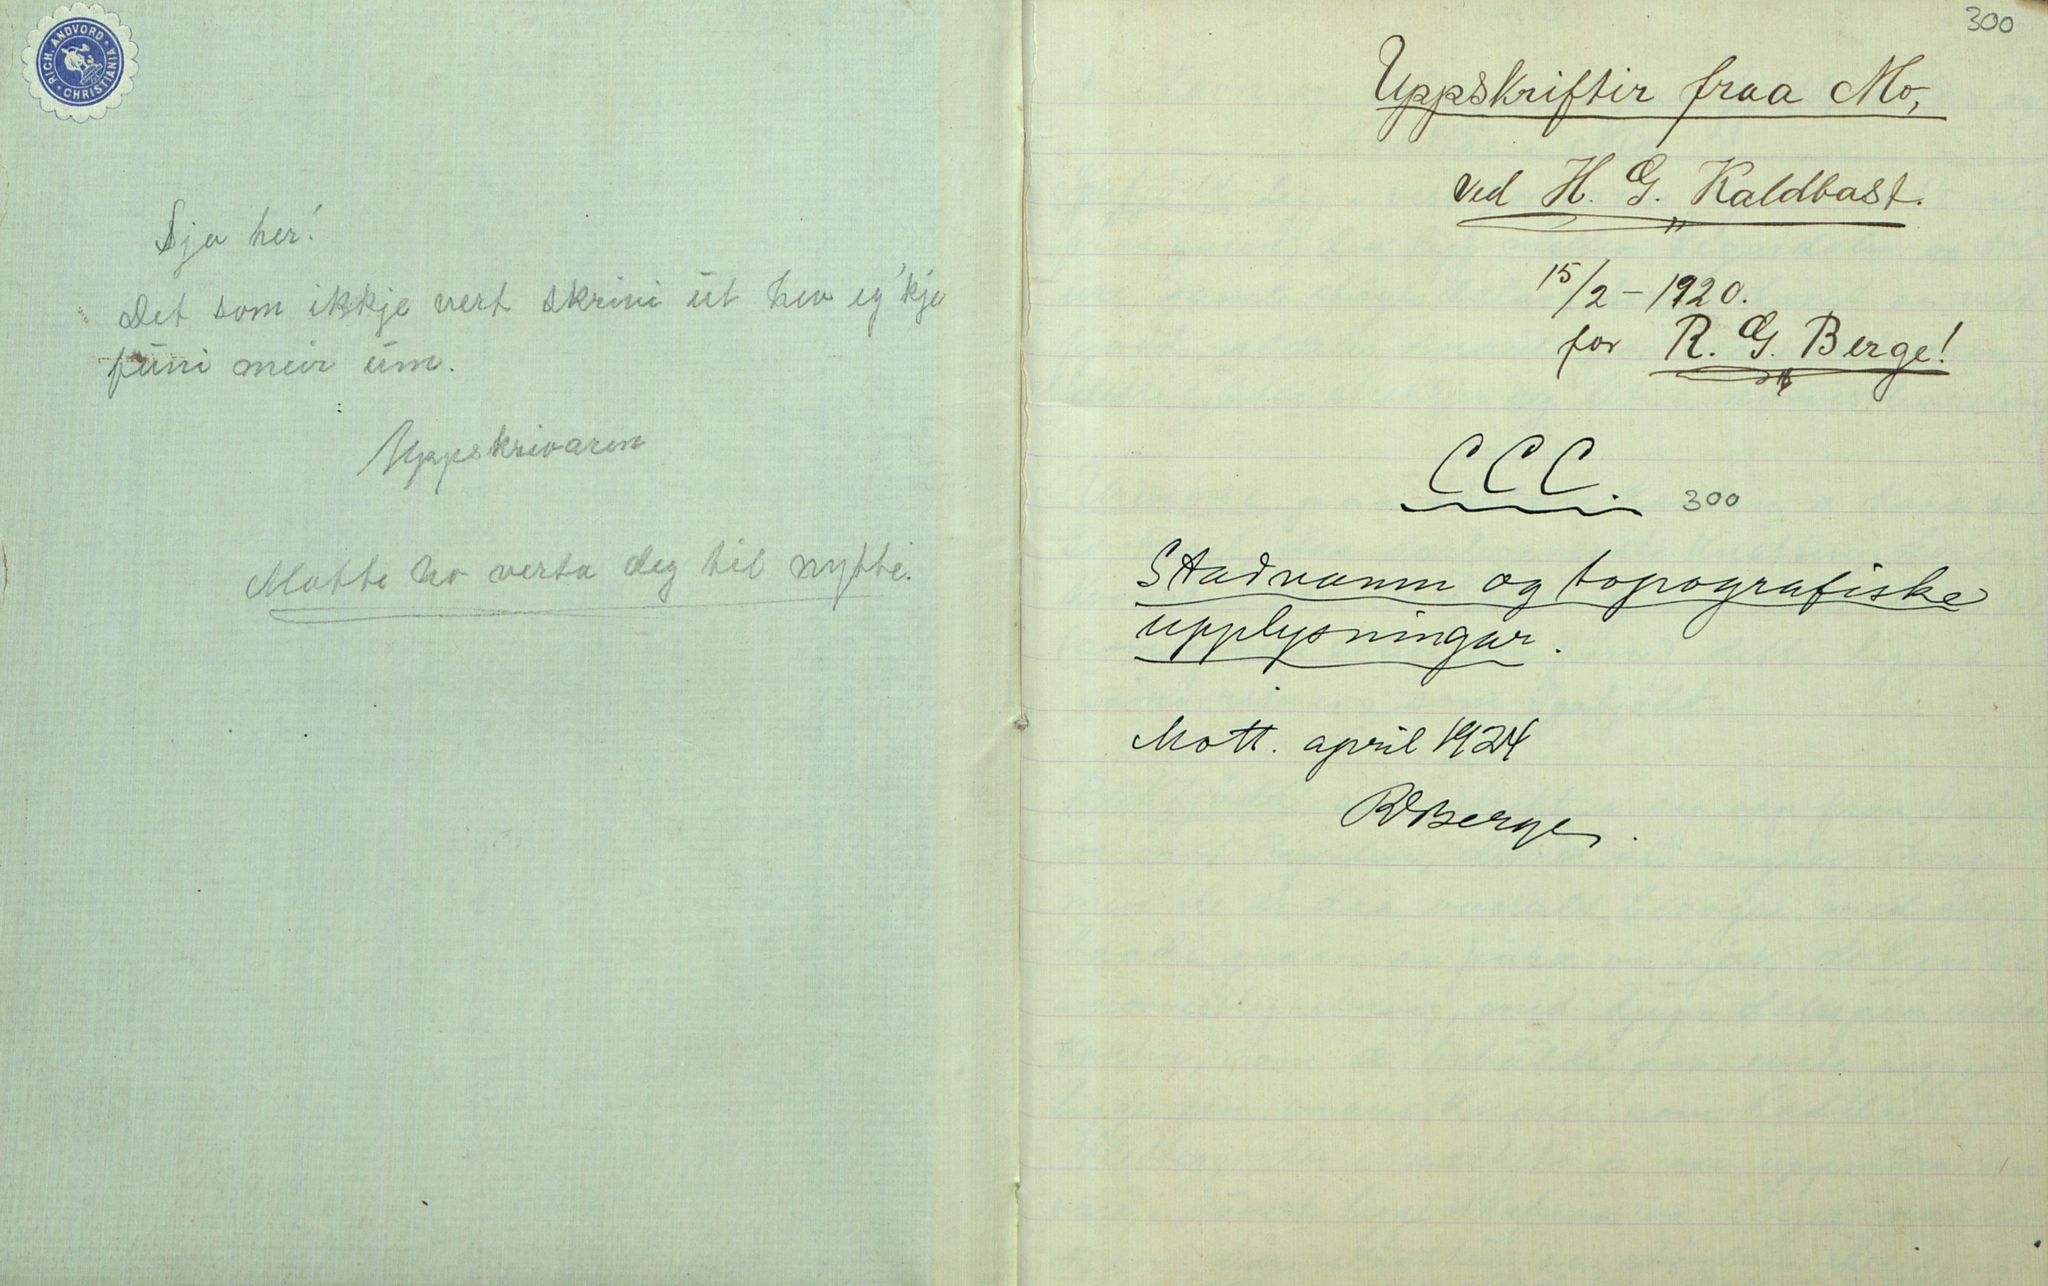 RICH. ANDVORD · CHRISTIANIA
Sja her!
Det som ikkje vert skrivi út hev eg 'kje
fúni meir úm.
Uppskrivaren
Matte no verta deg til nytte.
300
Uppskriftir fraa Mo,
ved H. G. Kaldbast.
15/2 – 1920.
for R. G. Berge!
CCC. 300
Stadnamn og topografiske
upplysningar.
Mott. april 1924
RBerge.